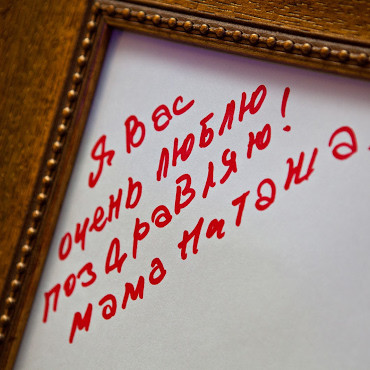 Я Вас
очень люблю
поздравляю!
мама Наташа.